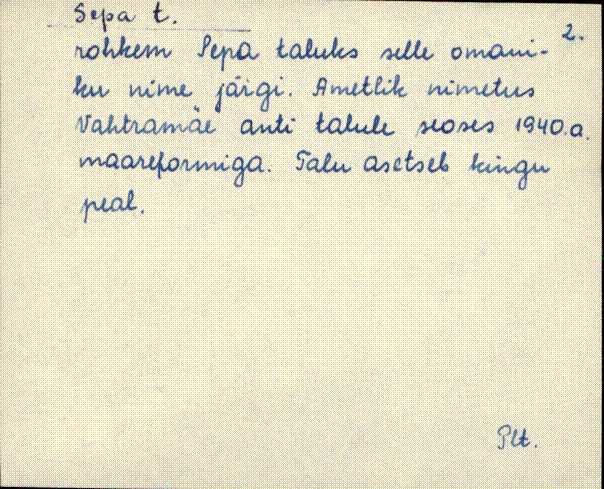 Sepa t.
2.
rohkem Sepa taluks selle omani-
ku nime järgi. Ametlik nimetus
Vahtramäe anti talule seoses 1940.a.
maareformiga. Talu asetseb kingu
peal.
Plt.